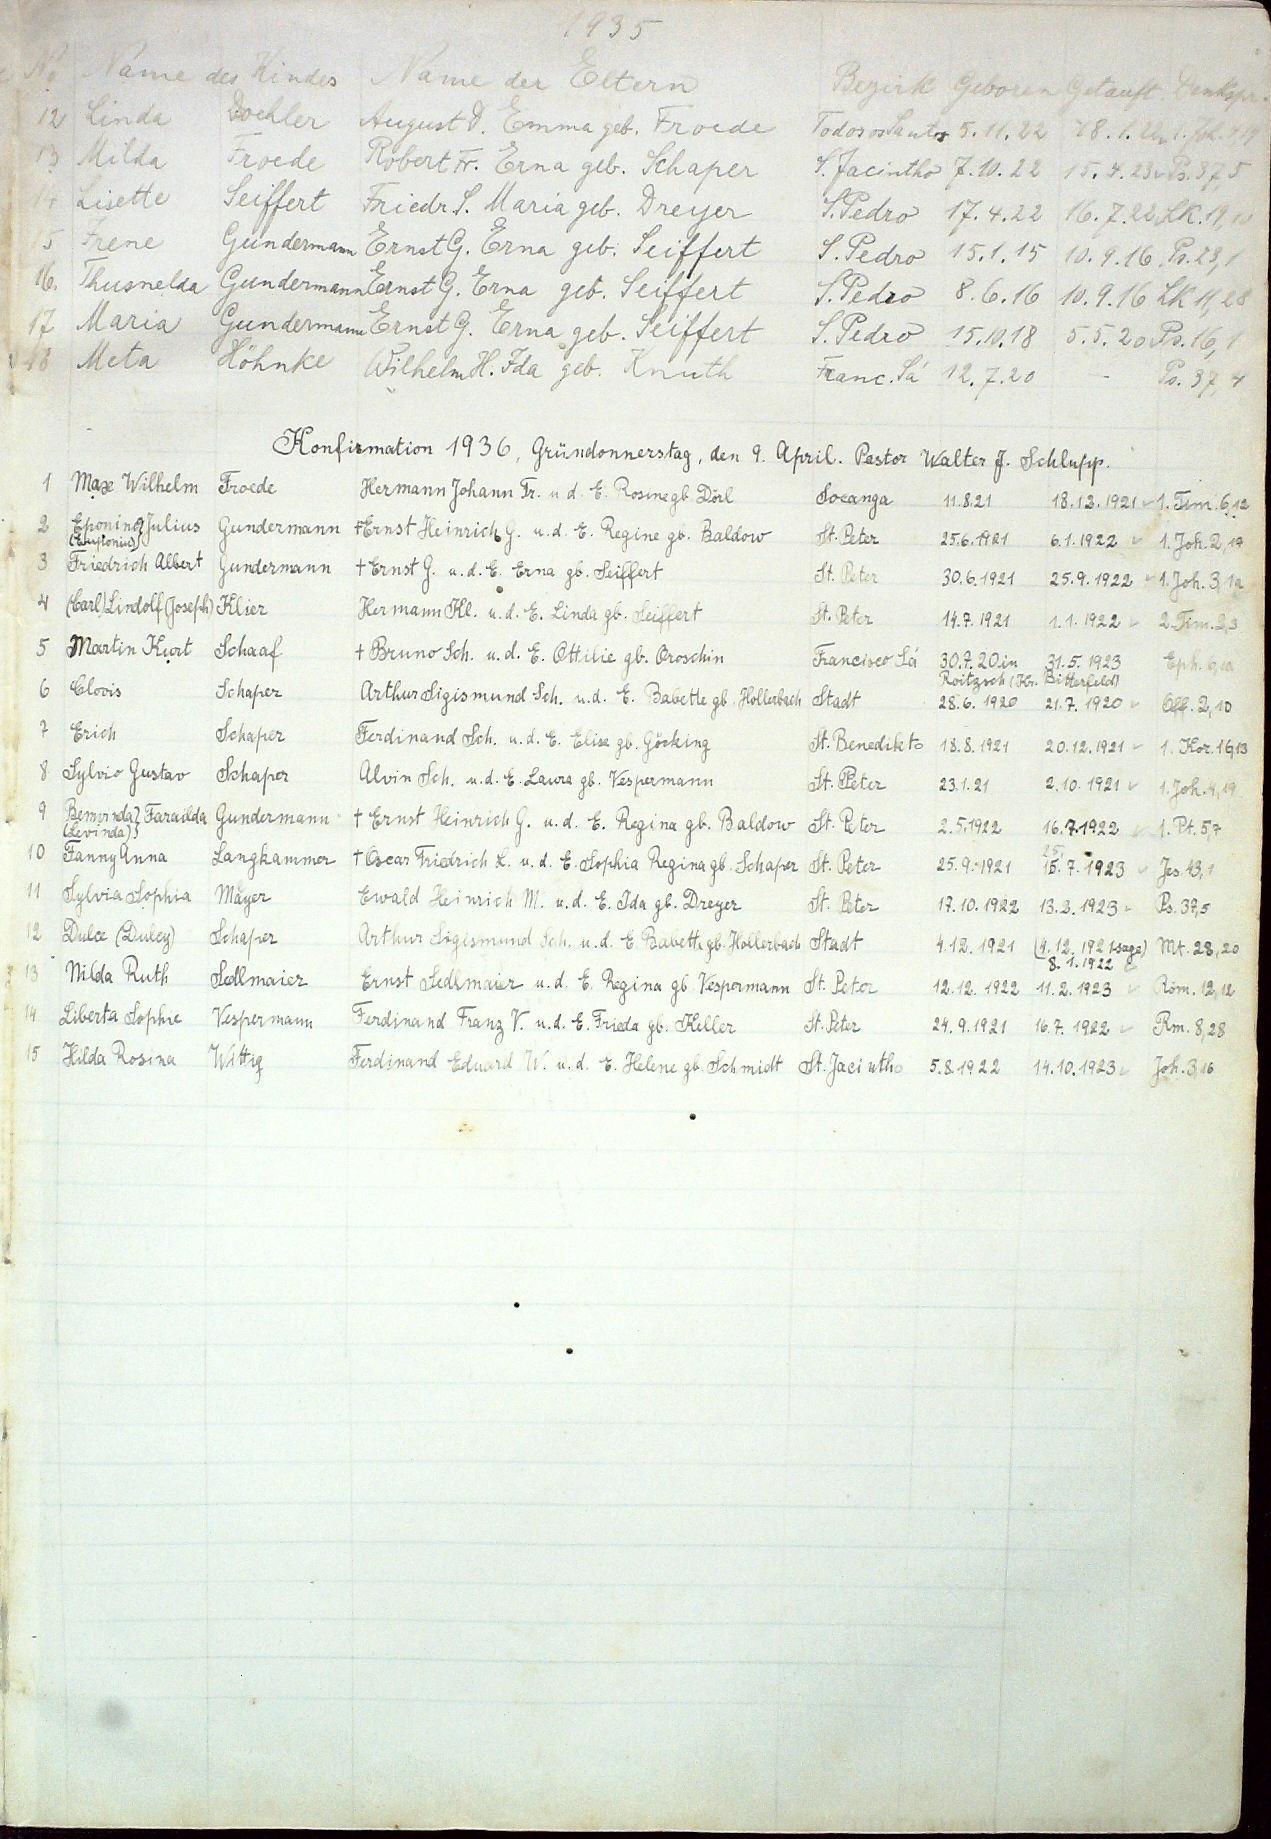 1935
No Name des Kindes Name der Eltern Bezirk Geboren Getauft. Denkspr.
12 Linda Doehler August D. Emma geb. Froede Todos os Santos 5.11.22
13 Milda Froede Robert Fr. Erna geb. Schaper S. Jacintho 7.10.22 15.4.23 Ps. 37,5
14 Lisette Seiffert Friedr. S. Maria geb. Dreyer S. Pedro 17.4.22 16.7.22 LK. 19,10
15 Irene Gundermann Ernst G. Erna geb. Seiffert S. Pedro 15.1.15 10.9.16 Ps. 23,1
16. Thusnelda Gundermann Ernst G. Erna geb. Seiffert S. Pedro 8.6.16 10.9.16 LK 11,28
17 Maria Gundermann Ernst G. Erna geb. Seiffert S. Pedro 15.10.18 5.5.20 Ps. 16,1
18 Meta Höhnke Wilhelm H. Ida geb. Knuth Franc. Sá 12.7.20 - Ps. 37,4
Konfirmation 1936, Gründonnerstag, den 9. April. Pastor Walter J. Schlupp.
1 Max Wilhelm Froede Hermann Johann Fr. u. d. E. Rosine gb. Dörl Socanga 11.8.21 18.12.1921 1. Tim. 6,12
2 Eponino Julius Gundermann † Ernst Heinrich G. u. d. E. Regine gb. Baldow St. Peter 25.6.1921 6.1.1922 1. Joh. 2,17
3 Friedrich Albert Gundermann † Ernst G. u. d. E. Erna gb. Seiffert St. Peter 30.6.1921 25.9.1922 1. Joh. 3,1a
4 (Carl) Lindolf (Joseph) Klier Hermann Kl. u. d. E. Linda gb. Seiffert St. Peter 14.7.1921 1.1.1922 2. Tim. 2,3
5 Martin Kurt Schaaf † Bruno Sch. u. d. E. Ottilie gb. Oroschin Francisco Sá 30.7.20 in 31.5.1923 Eph. 6,10
Roitzsch (Kr. Bitterfeld)
6 Clovis Schaper Arthur Sigismund Sch. u. d. E. Babette gb. Hollerbach Stadt 28.6.1920 21.7.1920 Off. 2,10
7 Erich Schaper Ferdinand Sch. u. d. E. Elise gb. Göcking St. Benedikto 18.8.1921 20.12.1921 1. Kor. 16,13
8 Sylvio Gustav Schaper Alvin Sch. u. d. E. Laura gb. Vespermann St. Peter 23.1.21 2.10.1921 1. Joh. 4,19
9 Farailda Gundermann † Ernst Heinrich G. u. d. E. Regina gb. Baldow St. Peter 2.5.1922 16.7.1922 1. Pt. 5,7
(Levinda)
10 Fanny Anna Langkammer † Oscar Friedrich L. u. d. E. Sophia Regina gb. Schaper St. Peter 25.9.1921 15.7.1923 Jes. 43,1
11 Sylvia Sophia Mayer Ewald Heinrich M. u. d. E. Ida gb. Dreyer St. Peter 17.10.1922 13.2.1923 Ps. 37,5
12 Dulce (Dulcy) Schaper Arthur Sigismund Sch. u. d. E Babette gb. Hollerbach Stadt 4.12.1921 Mt. 28,20
8.1.1922
13 Nilda Ruth Sedlmaier Ernst Sedlmaier u. d. E. Regina gb. Vespermann St. Peter 12.12.1922 11.2.1923 Röm. 12,12
14 Liberta Sophie Vespermann Ferdinand Franz V. u. d. E. Frieda gb. Keller St. Peter 24.9.1921 16.7.1922 Rm. 8,28
15 Hilda Rosina Wittig Ferdinand Eduard W. u. d. E. Helene gb. Schmidt St. Jacintho 5.8.1922 14.10.1923 Joh. 3,16